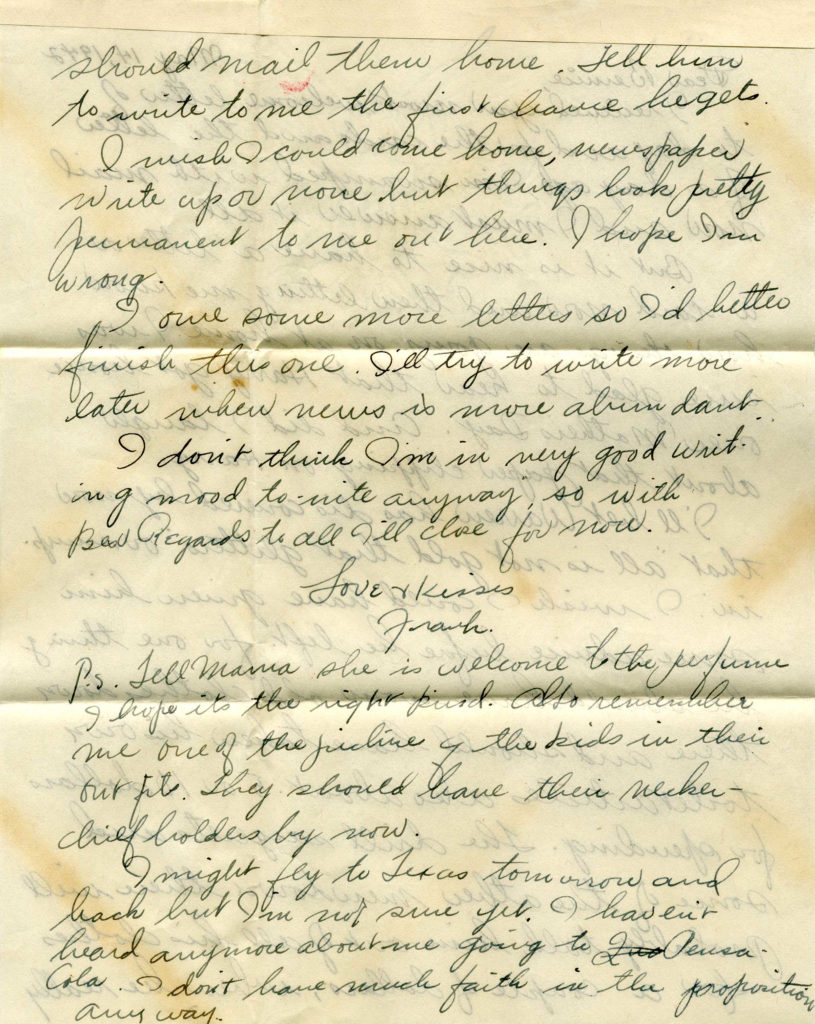 should mail them home. Tell him
to write to me the first chance he gets.
I wish I could come home, newspaper
write up or none but things look pretty
permanent to me out here. I hope I'm
wrong.
I owe some more letters so I'd better
finish this one. I'll try to write more
later when news is more abundant.
I don't think I'm in very good writ-
ing mood to-nite anyway, so with
Best Regards to all I'll close for now.
Love & Kisses
Frank.
P.S. Tell Mama she is welcome to the perfume
I hope its the right kind. Also remember
me one of the picture of the kids in their
out fits. They should have their necker-
chief holders by now.
I might fly to Texas tomorrow and
back but I'm not sure yet. I haven't
heard anymore about me going to Pensa-
Cola. I don't have much faith in the proposition
anyway.